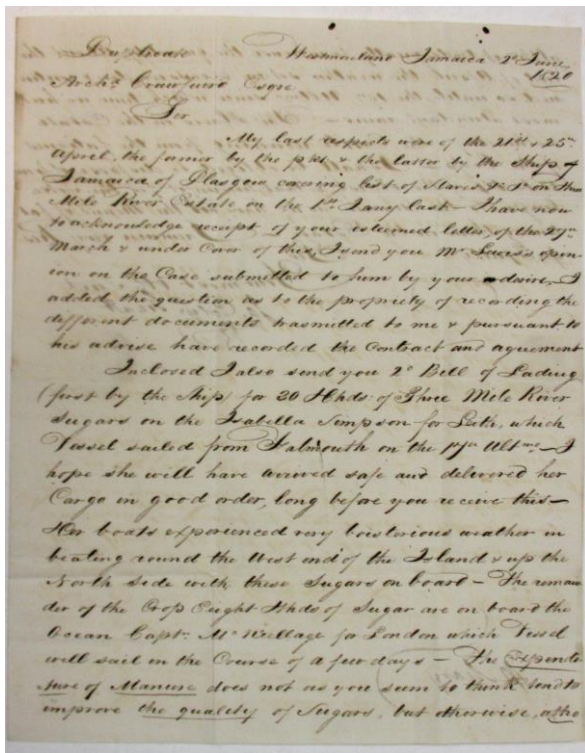 Duplicate Westmoreland Jamaica 2d June
1820
Archd. Crawfurd Esqre
Sir
My last respects were of the 21st & 25
April, the former by the pkt & the latter by the Ship
Jamaica of Glasgow covering list of Slaves &c &c on Three
Mile River Estate on the 1st Jany last – I have now
to acknowledge receipt of your esteemed letter of the 27th
March & under Cover of this I send you Mr opin-
ion on the Case submitted to him by your desire, I
added the question as to the propriety of recording the
different documents trasmitted to me & pursuant to
his advise have recorded the Contract and agument
Inclosed I also send you 2d Bill of Lading
(first by the Ship) for 30 Hhds: of Three Mile River
Sugars on the Isabella Simpson for Leith, which
Vessel sailed from Falmouth on the Ultmo – I
hope she will have arrived safe and delivered her
Cargo in good order, long before you receive this –
Her boats experienced very boistorious weather in
beating round the West end of the Island & up the
North side with these Sugars on board – The remain
der of the Crop Eught Hhds of Sugar are on board the
Ocean Captn. for London which Vessel
will sail in the Course of a few days – The Expendi
ture of Manure does not as you seem to think tend to
improve the quality of Sugars, but otherwise, altho